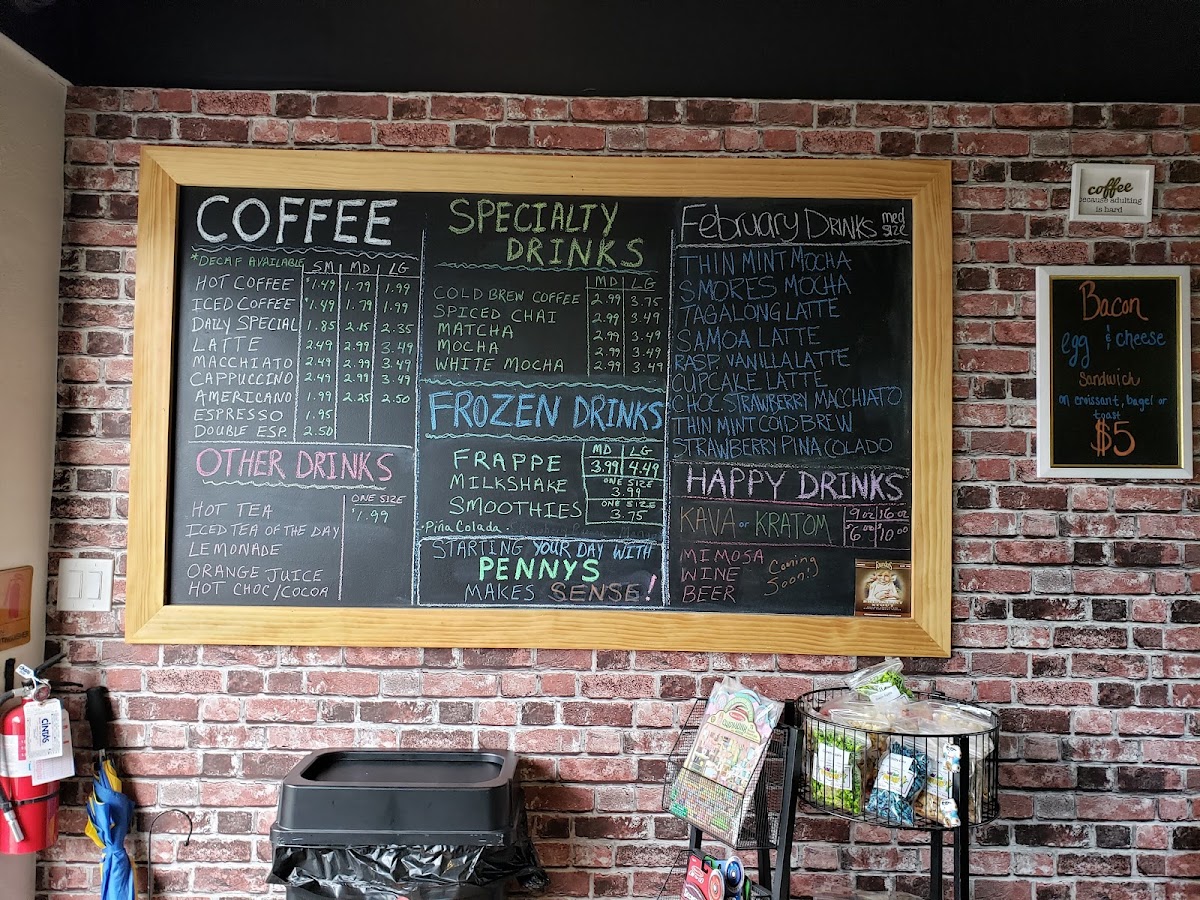 COFFEE
*DECAF AVAILABLE SM MD LG
HOT COFFEE $1.49 1.79 1.99
ICED COFFEE $1.49 1.79 1.99
DAILY SPECIAL 1.85 2.15 2.35
LATTE 2.49 2.99 3.49
MACCHIATO 2.49 2.99 3.49
CAPPUCCINO 2.49 2.99 3.49
AMERICANO 1.99 2.25 2.50
ESPRESSO 1.95
DOUBLE ESP. 2.50
OTHER DRINKS
ONE SIZE
HOT TEA $1.99
ICED TEA OF THE DAY
LEMONADE
ORANGE JUICE
HOT CHOC/COCOA
SPECIALTY
DRINKS
MD LG
COLD BREW COFFEE 2.99 3.75
SPICED CHAI 2.99 3.49
MATCHA 2.99 3.49
MOCHA 2.99 3.49
WHITE MOCHA 2.99 3.49
FROZEN DRINKS
MD LG
FRAPPE 3.99 4.49
MILKSHAKE ONE SIZE 3.99
SMOOTHIES ONE SIZE 3.75
·Piña Colada·
STARTING YOUR DAY WITH
PENNYS
MAKES SENSE!
February DRINKS med SIZE
THIN MINT MOCHA
S'MORES MOCHA
TAGALONG LATTE
SAMOA LATTE
RASP. VANILLA LATTE
CUPCAKE LATTE
CHOC. STRAWBERRY MACCHIATO
THIN MINT COLD BREW
STRAWBERRY PINA COLADO
HAPPY DRINKS
KAVA or KRATOM 9 oz 16 oz
$6.00 $10.00
MIMOSA
WINE
BEER
Coming
Soon!
coffee
because adulting
is hard
Bacon
egg & cheese
Sandwich
on croissant, bagel or
toast
$5
CINTAS